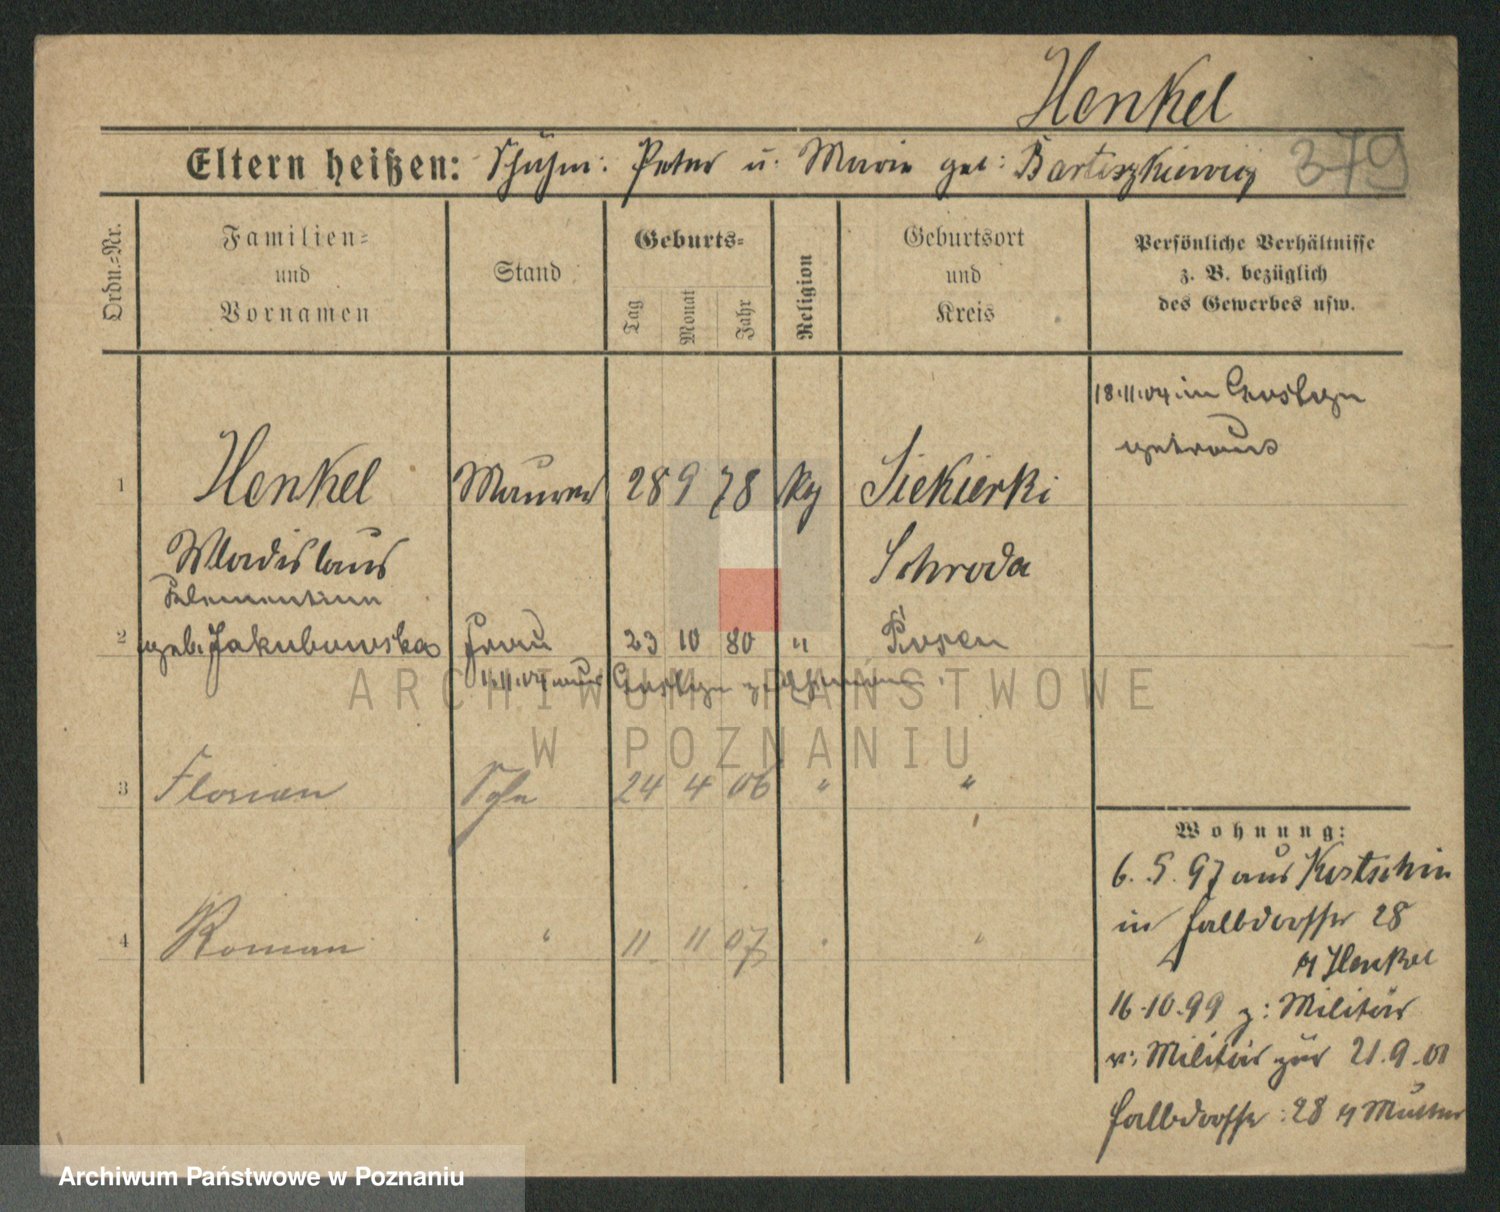 Henkel
379
Eltern heißen: Peter u. Marie geb: Bartiszkiewicz
Ordn.-Nr.
Familien-
und
Vornamen
Stand
Geburts-
Tag
Monat
Jahr
Religion
Geburtsort
und
Kreis
Persönliche Verhältnisse
z. B. bezüglich
des Gewerbes usw.
18.11.04 in Gostyn
getraut
1 Henkel Maurer 28 9 78 kg Siekierki
Wladislaus Schroda
Klementine
2 geb. Jakubowska Frau 23 10 80 " Posen
11.04 aus Gostyn
ARCHIWUM PAŃSTWOWE
W POZNANIU
3 Florian Sohn 24 4 06 " "
4 Roman " 11 11 07 " "
Wohnung:
6. 5. 97 aus Kostschin
in 28
Henkel
16.10.99 z: Militär
v: Militär zur 21.9.01
28 Mutter
Archiwum Państwowe w Poznaniu